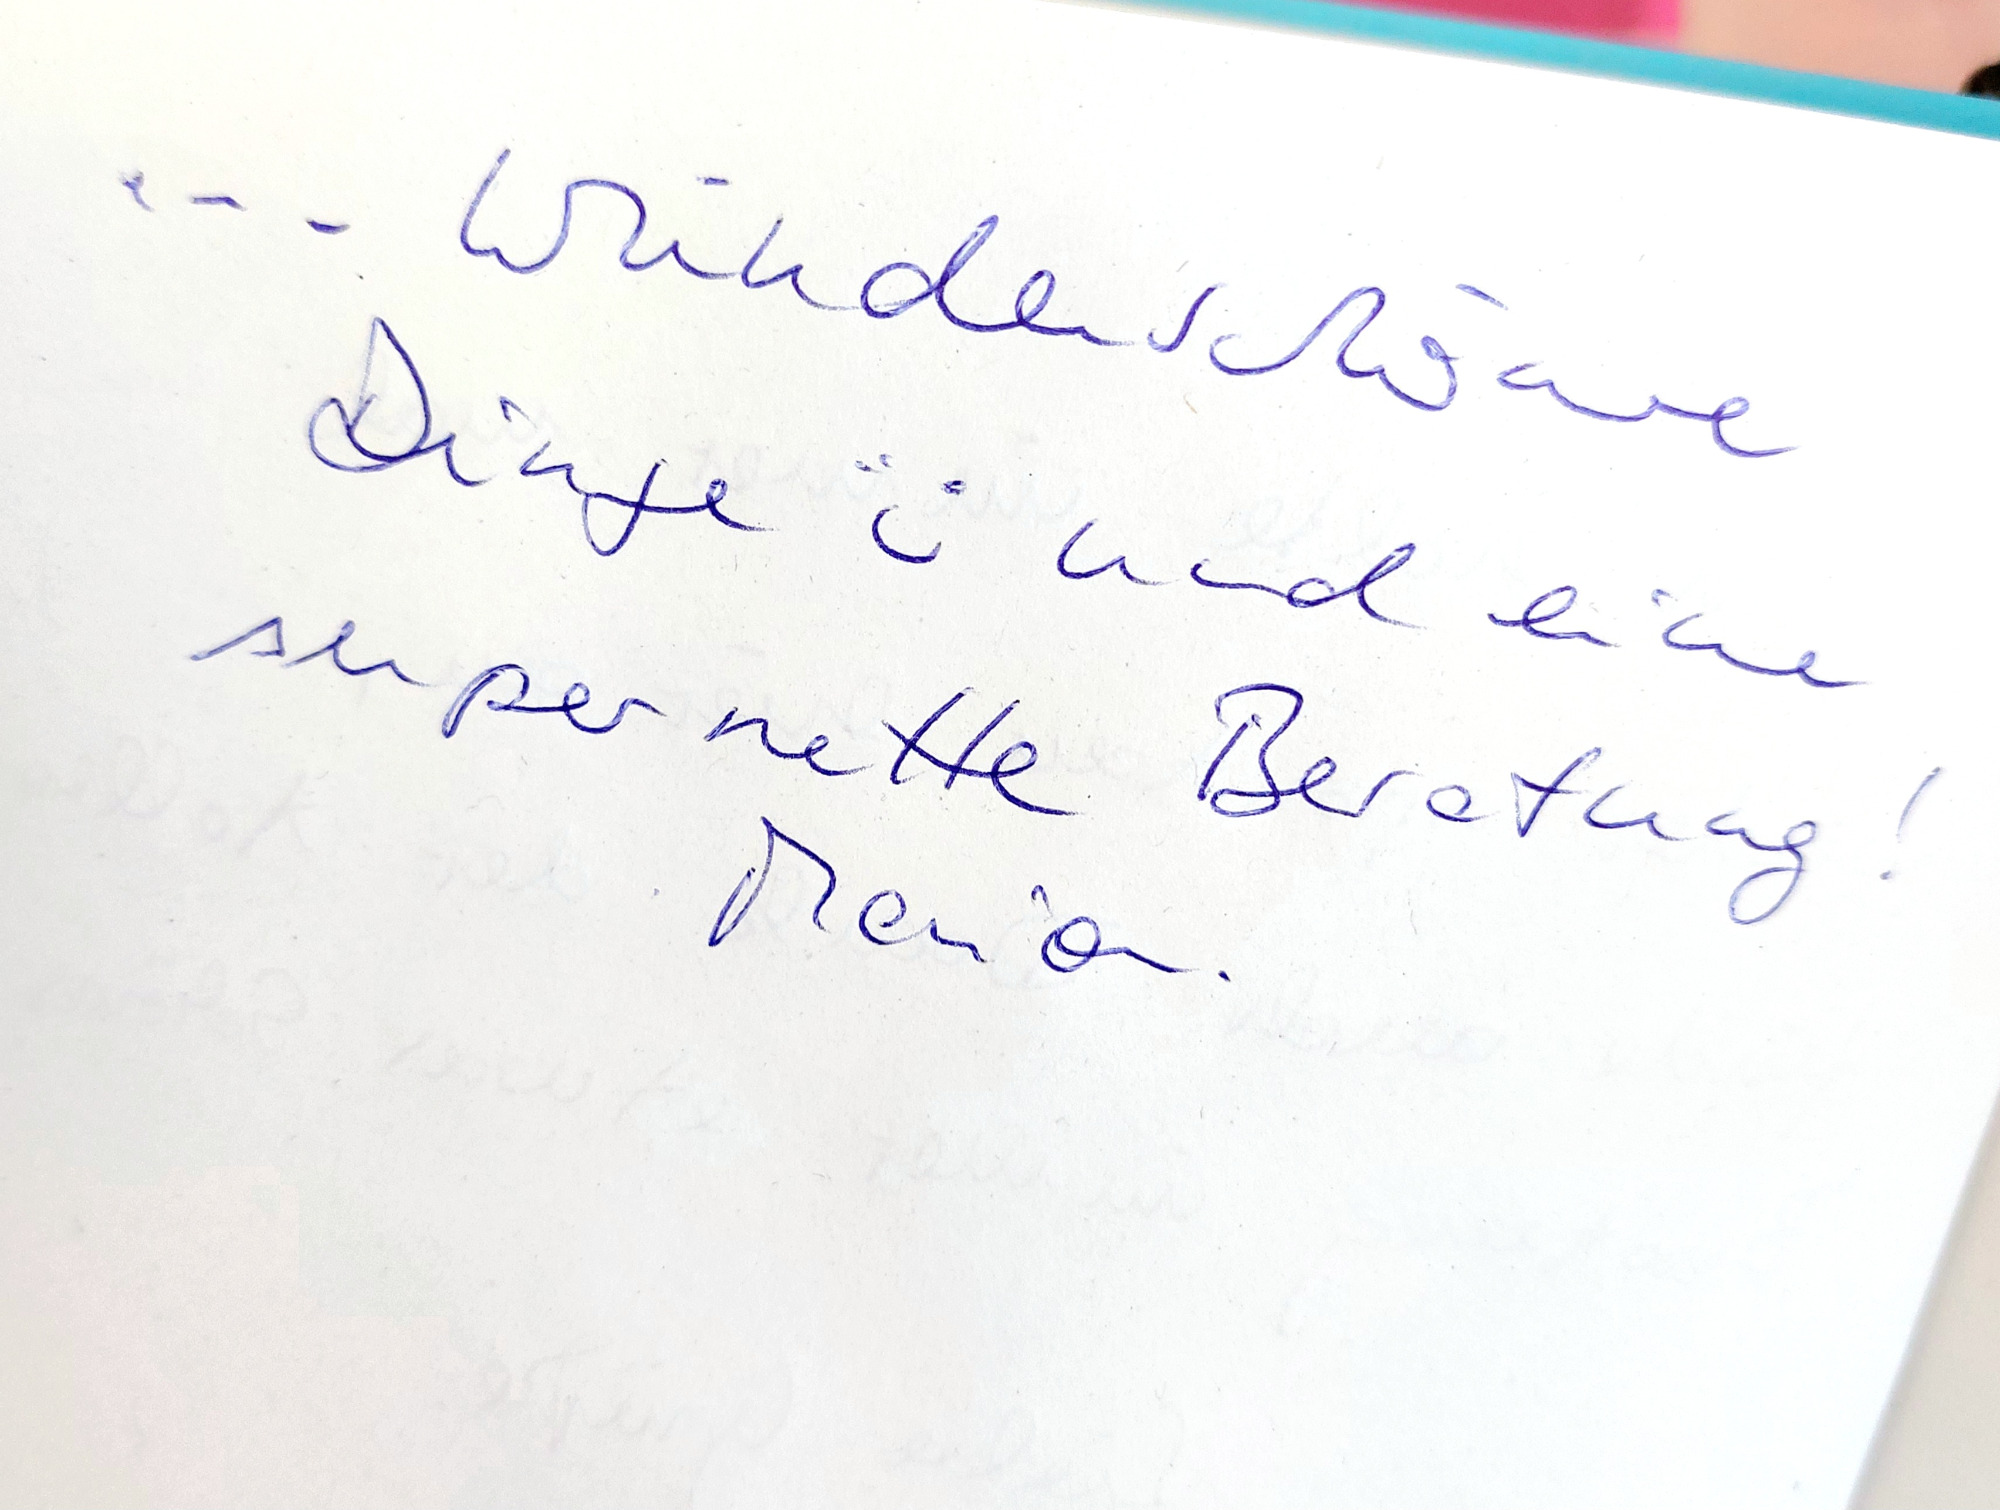 ... Wunderschöne
Dinge ü und eine
super nette Beratung!
Marion.